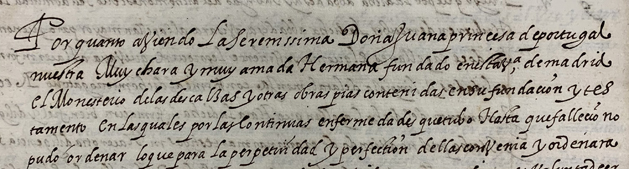 Por quanto aviendo La serenissima Doña Juana princesa de portugal
nuestra Muy chara y muy amada Hermana fundado en esta v.ª de madrid
el Monesterio de las descalças y otras obras pias contenidas en su fundacion y tes
tamento En las quales por las continuas enfermedades que tubo Hasta que fallecio no
pudo ordenar lo que para la perpetuidad y perfection dellas convenia y ordenara